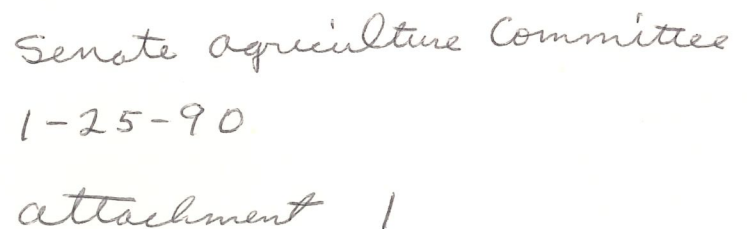 Senate Agriculture Committee
1-25-90
attachment 1